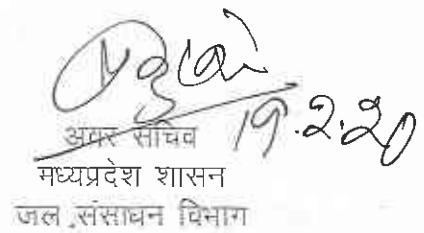 19.2.20
अवर सचिव
मध्यप्रदेश शासन
जल संसाधन विभाग